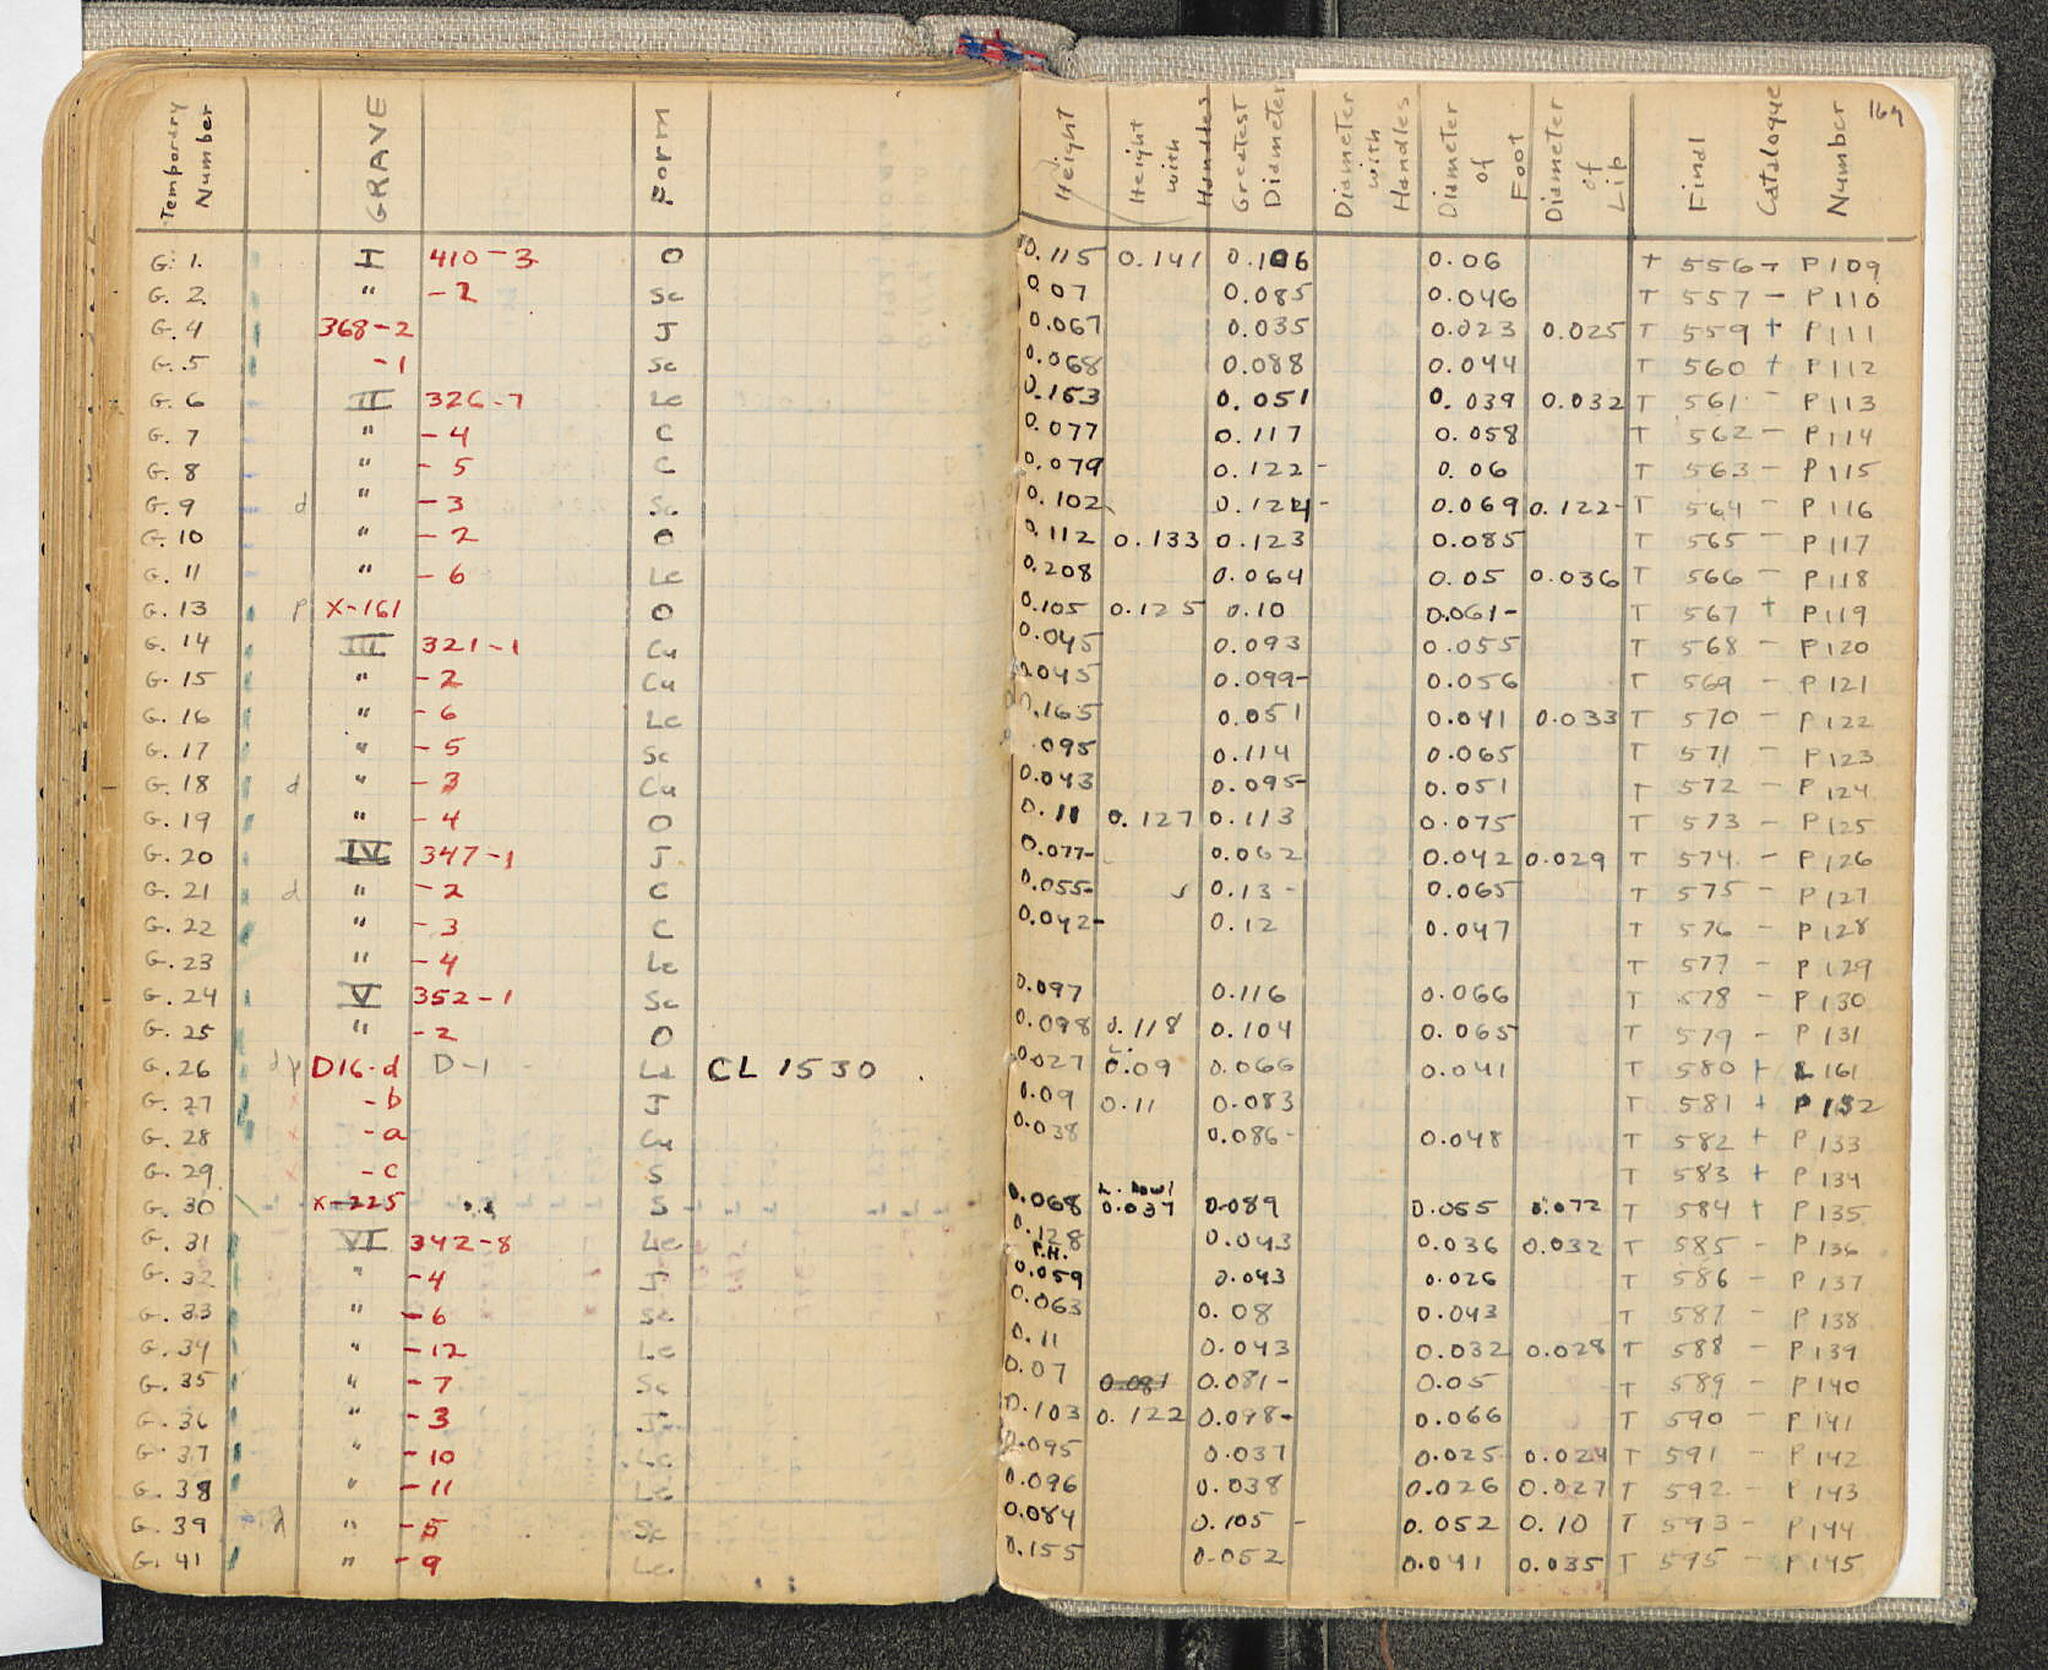 Temporary Number GRAVE Form Height Height with Handles Greatest Diameter Diameter with Handles Diameter of Foot Diameter of Lip Final Catalogue Number 169
G. 1. I 410-3 O 0.115 0.141 0.106 0.06 T 556 + P 109
G. 2. " -2 Sc 0.07 0.085 0.046 T 557 - P 110
G. 4 368-2 J 0.067 0.035 0.023 0.025 T 559 + P 111
G. 5 -1 Sc 0.068 0.088 0.044 T 560 + P 112
G. 6 II 326-7 Le 0.153 0.051 0.039 0.032 T 561 - P 113
G. 7 " -4 C 0.077 0.117 0.058 T 562 - P 114
G. 8 " -5 C 0.079 0.122- 0.06 T 563 - P 115
G. 9 d " -3 Sc 0.102 0.124- 0.069 0.122- T 564 - P 116
G. 10 " -2 O 0.112 0.133 0.123 0.085 T 565 - P 117
G. 11 " -6 Le 0.208 0.064 0.05 0.036 T 566 - P 118
G. 13 p X-161 O 0.105 0.125 0.10 0.061- T 567 + P 119
G. 14 III 321-1 Cu 0.045 0.093 0.055 T 568 - P 120
G. 15 " -2 Cu 0.045 0.099- 0.056 T 569 - P 121
G. 16 " -6 Le 0.165 0.051 0.041 0.033 T 570 - P 122
G. 17 " -5 Sc .095 0.114 0.065 T 571 - P 123
G. 18 d " -3 Cu 0.043 0.095- 0.051 T 572 - P 124
G. 19 " -4 O 0.11 0.127 0.113 0.075 T 573 - P 125
G. 20 IV 347-1 J 0.077- 0.062 0.042 0.029 T 574 - P 126
G. 21 d " -2 C 0.055- 0.13- 0.065 T 575 - P 127
G. 22 " -3 C 0.042- 0.12 0.047 T 576 - P 128
G. 23 " -4 Le T 577 - P 129
G. 24 V 352-1 Sc 0.097 0.116 0.066 T 578 - P 130
G. 25 " -2 O 0.098 0.118 0.104 0.065 T 579 - P 131
G. 26 dp D16-d D-1 La CL 1530 0.027 L. 0.09 0.066 0.041 T 580 + L 161
G. 27 x -b J 0.09 0.11 0.083 T 581 + P 132
G. 28 x -a Cu 0.038 0.086- 0.048 T 582 + P 133
G. 29 x -c S T 583 + P 134
G. 30 X-225 S 0.068 L. bowl 0.037 0.089 0.055 0.072 T 584 + P 135
G. 31 VI 342-8 Le 0.128 0.043 0.036 0.032 T 585 - P 136
G. 32 " -4 J P.H. 0.059 0.043 0.026 T 586 - P 137
G. 33 " -6 Sc 0.063 0.08 0.043 T 587 - P 138
G. 34 " -12 Le 0.11 0.043 0.032 0.028 T 588 - P 139
G. 35 " -7 Sc 0.07 0.081 0.081- 0.05 T 589 - P 140
G. 36 " -3 J 0.103 0.122 0.098- 0.066 T 590 - P 141
G. 37 " -10 Le 0.095 0.037 0.025 0.024 T 591 - P 142
G. 38 " -11 Le 0.096 0.038 0.026 0.027 T 592 - P 143
G. 39 d " -5 Sc 0.084 0.105 - 0.052 0.10 T 593 - P 144
G. 41 " -9 Le 0.155 0.052 0.041 0.035 T 595 - P 145